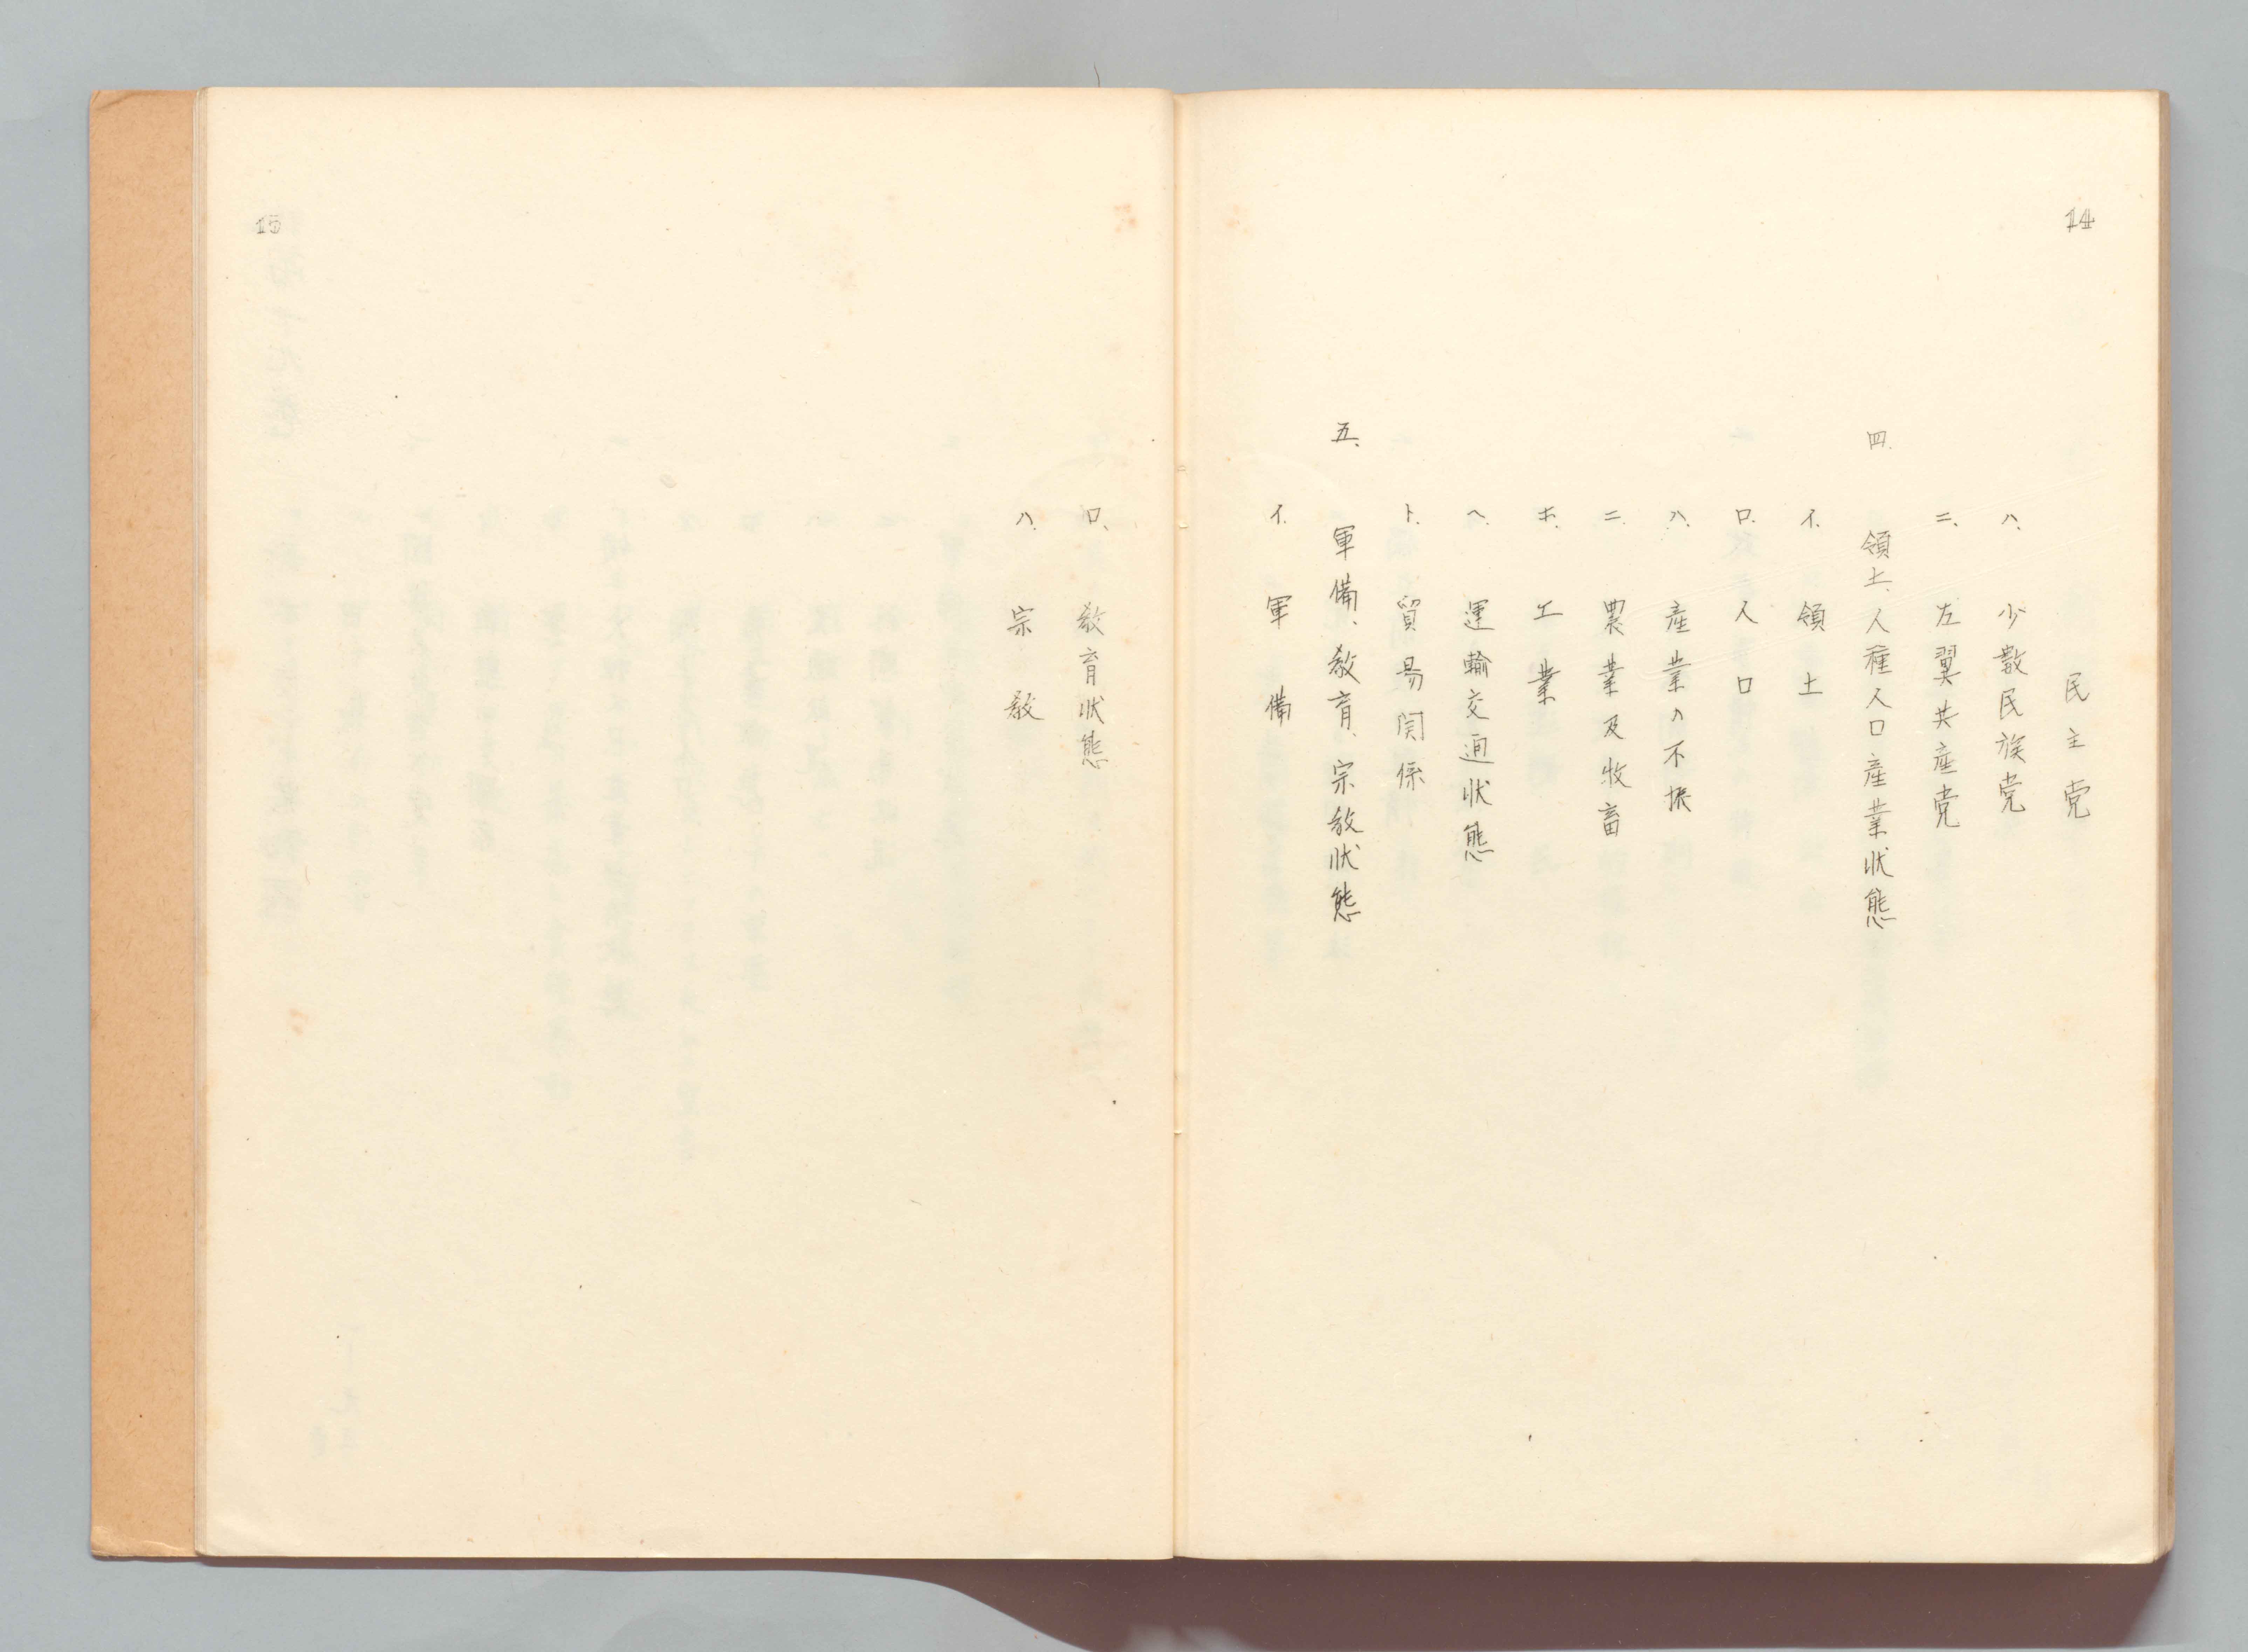 14
民主党
ハ、少数民族党
ニ、左翼共産党
四、領土、人種人口産業状態
イ、領土
ロ、人口
ハ、産業ノ不振
ニ、農業及牧畜
ホ、工業
ヘ、運輸交通状態
ト、貿易関係
五、軍備、教育、宗教状態
イ、軍備
ロ、教育状態
ハ、宗教
15